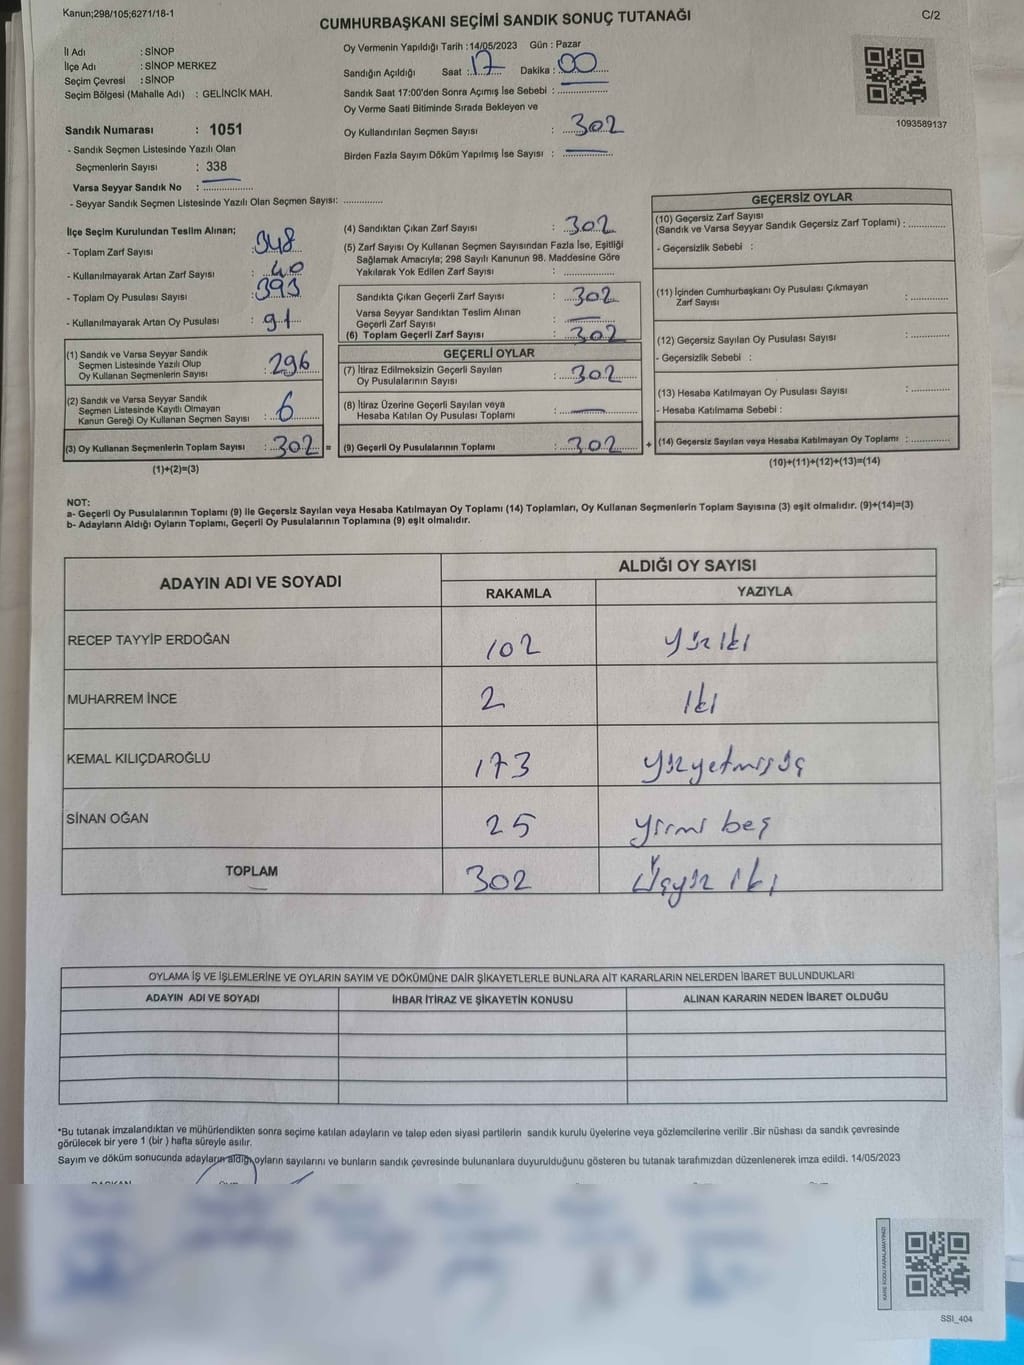 Kanun;298/105;6271/18-1
CUMHURBAŞKANI SEÇİMİ SANDIK SONUÇ TUTANAĞI
C/2
İl Adı : SİNOP
İlçe Adı : SİNOP MERKEZ
Seçim Çevresi : SİNOP
Seçim Bölgesi (Mahalle Adı) : GELİNCİK MAH.
Sandık Numarası : 1051
- Sandık Seçmen Listesinde Yazılı Olan
Seçmenlerin Sayısı : 338
Varsa Seyyar Sandık No :
- Seyyar Sandık Seçmen Listesinde Yazılı Olan Seçmen Sayısı:
Oy Vermenin Yapıldığı Tarih :14/05/2023 Gün : Pazar
Sandığın Açıldığı Saat : 17 Dakika : 00
Sandık Saat 17:00'den Sonra Açımış İse Sebebi :
Oy Verme Saati Bitiminde Sırada Bekleyen ve
Oy Kullandırılan Seçmen Sayısı : 302
Birden Fazla Sayım Döküm Yapılmış İse Sayısı :
1093589137
İlçe Seçim Kurulundan Teslim Alınan;
- Toplam Zarf Sayısı : 348
- Kullanılmayarak Artan Zarf Sayısı : 40
- Toplam Oy Pusulası Sayısı : 393
- Kullanılmayarak Artan Oy Pusulası : 91
(1) Sandık ve Varsa Seyyar Sandık
Seçmen Listesinde Yazılı Olup
Oy Kullanan Seçmenlerin Sayısı : 296
(2) Sandık ve Varsa Seyyar Sandık
Seçmen Listesinde Kayıtlı Olmayan
Kanun Gereği Oy Kullanan Seçmen Sayısı : 6
(3) Oy Kullanan Seçmenlerin Toplam Sayısı : 302 =
(1)+(2)=(3)
(4) Sandıktan Çıkan Zarf Sayısı : 302
(5) Zarf Sayısı Oy Kullanan Seçmen Sayısından Fazla İse, Eşitliği
Sağlamak Amacıyla; 298 Sayılı Kanunun 98. Maddesine Göre
Yakılarak Yok Edilen Zarf Sayısı :
Sandıkta Çıkan Geçerli Zarf Sayısı : 302
Varsa Seyyar Sandıktan Teslim Alınan
Geçerli Zarf Sayısı :
(6) Toplam Geçerli Zarf Sayısı : 302
GEÇERLİ OYLAR
(7) İtiraz Edilmeksizin Geçerli Sayılan
Oy Pusulalarının Sayısı : 302
(8) İtiraz Üzerine Geçerli Sayılan veya
Hesaba Katılan Oy Pusulası Toplamı :
(9) Geçerli Oy Pusulalarının Toplamı : 302 +
GEÇERSİZ OYLAR
(10) Geçersiz Zarf Sayısı
(Sandık ve Varsa Seyyar Sandık Geçersiz Zarf Toplamı) :
- Geçersizlik Sebebi :
(11) İçinden Cumhurbaşkanı Oy Pusulası Çıkmayan
Zarf Sayısı :
(12) Geçersiz Sayılan Oy Pusulası Sayısı :
- Geçersizlik Sebebi :
(13) Hesaba Katılmayan Oy Pusulası Sayısı :
- Hesaba Katılmama Sebebi :
(14) Geçersiz Sayılan veya Hesaba Katılmayan Oy Toplamı :
(10)+(11)+(12)+(13)=(14)
NOT:
a- Geçerli Oy Pusulalarının Toplamı (9) ile Geçersiz Sayılan veya Hesaba Katılmayan Oy Toplamı (14) Toplamları, Oy Kullanan Seçmenlerin Toplam Sayısına (3) eşit olmalıdır. (9)+(14)=(3)
b- Adayların Aldığı Oyların Toplamı, Geçerli Oy Pusulalarının Toplamına (9) eşit olmalıdır.
ADAYIN ADI VE SOYADI
ALDIĞI OY SAYISI
RAKAMLA YAZIYLA
RECEP TAYYİP ERDOĞAN 102 yüz iki
MUHARREM İNCE 2 iki
KEMAL KILIÇDAROĞLU 173 yüzyetmişüç
SİNAN OĞAN 25 yirmi beş
TOPLAM 302 üçyüz iki
OYLAMA İŞ VE İŞLEMLERİNE VE OYLARIN SAYIM VE DÖKÜMÜNE DAİR ŞİKAYETLERLE BUNLARA AİT KARARLARIN NELERDEN İBARET BULUNDUKLARI
ADAYIN ADI VE SOYADI İHBAR İTİRAZ VE ŞİKAYETİN KONUSU ALINAN KARARIN NEDEN İBARET OLDUĞU
*Bu tutanak imzalandıktan ve mühürlendikten sonra seçime katılan adayların ve talep eden siyasi partilerin sandık kurulu üyelerine veya gözlemcilerine verilir .Bir nüshası da sandık çevresinde
görülecek bir yere 1 (bir ) hafta süreyle asılır.
Sayım ve döküm sonucunda adayların aldığı oyların sayılarını ve bunların sandık çevresinde bulunanlara duyurulduğunu gösteren bu tutanak tarafımızdan düzenlenerek imza edildi. 14/05/2023
KARE KODU KARALAMAYINIZ!
SSI_404